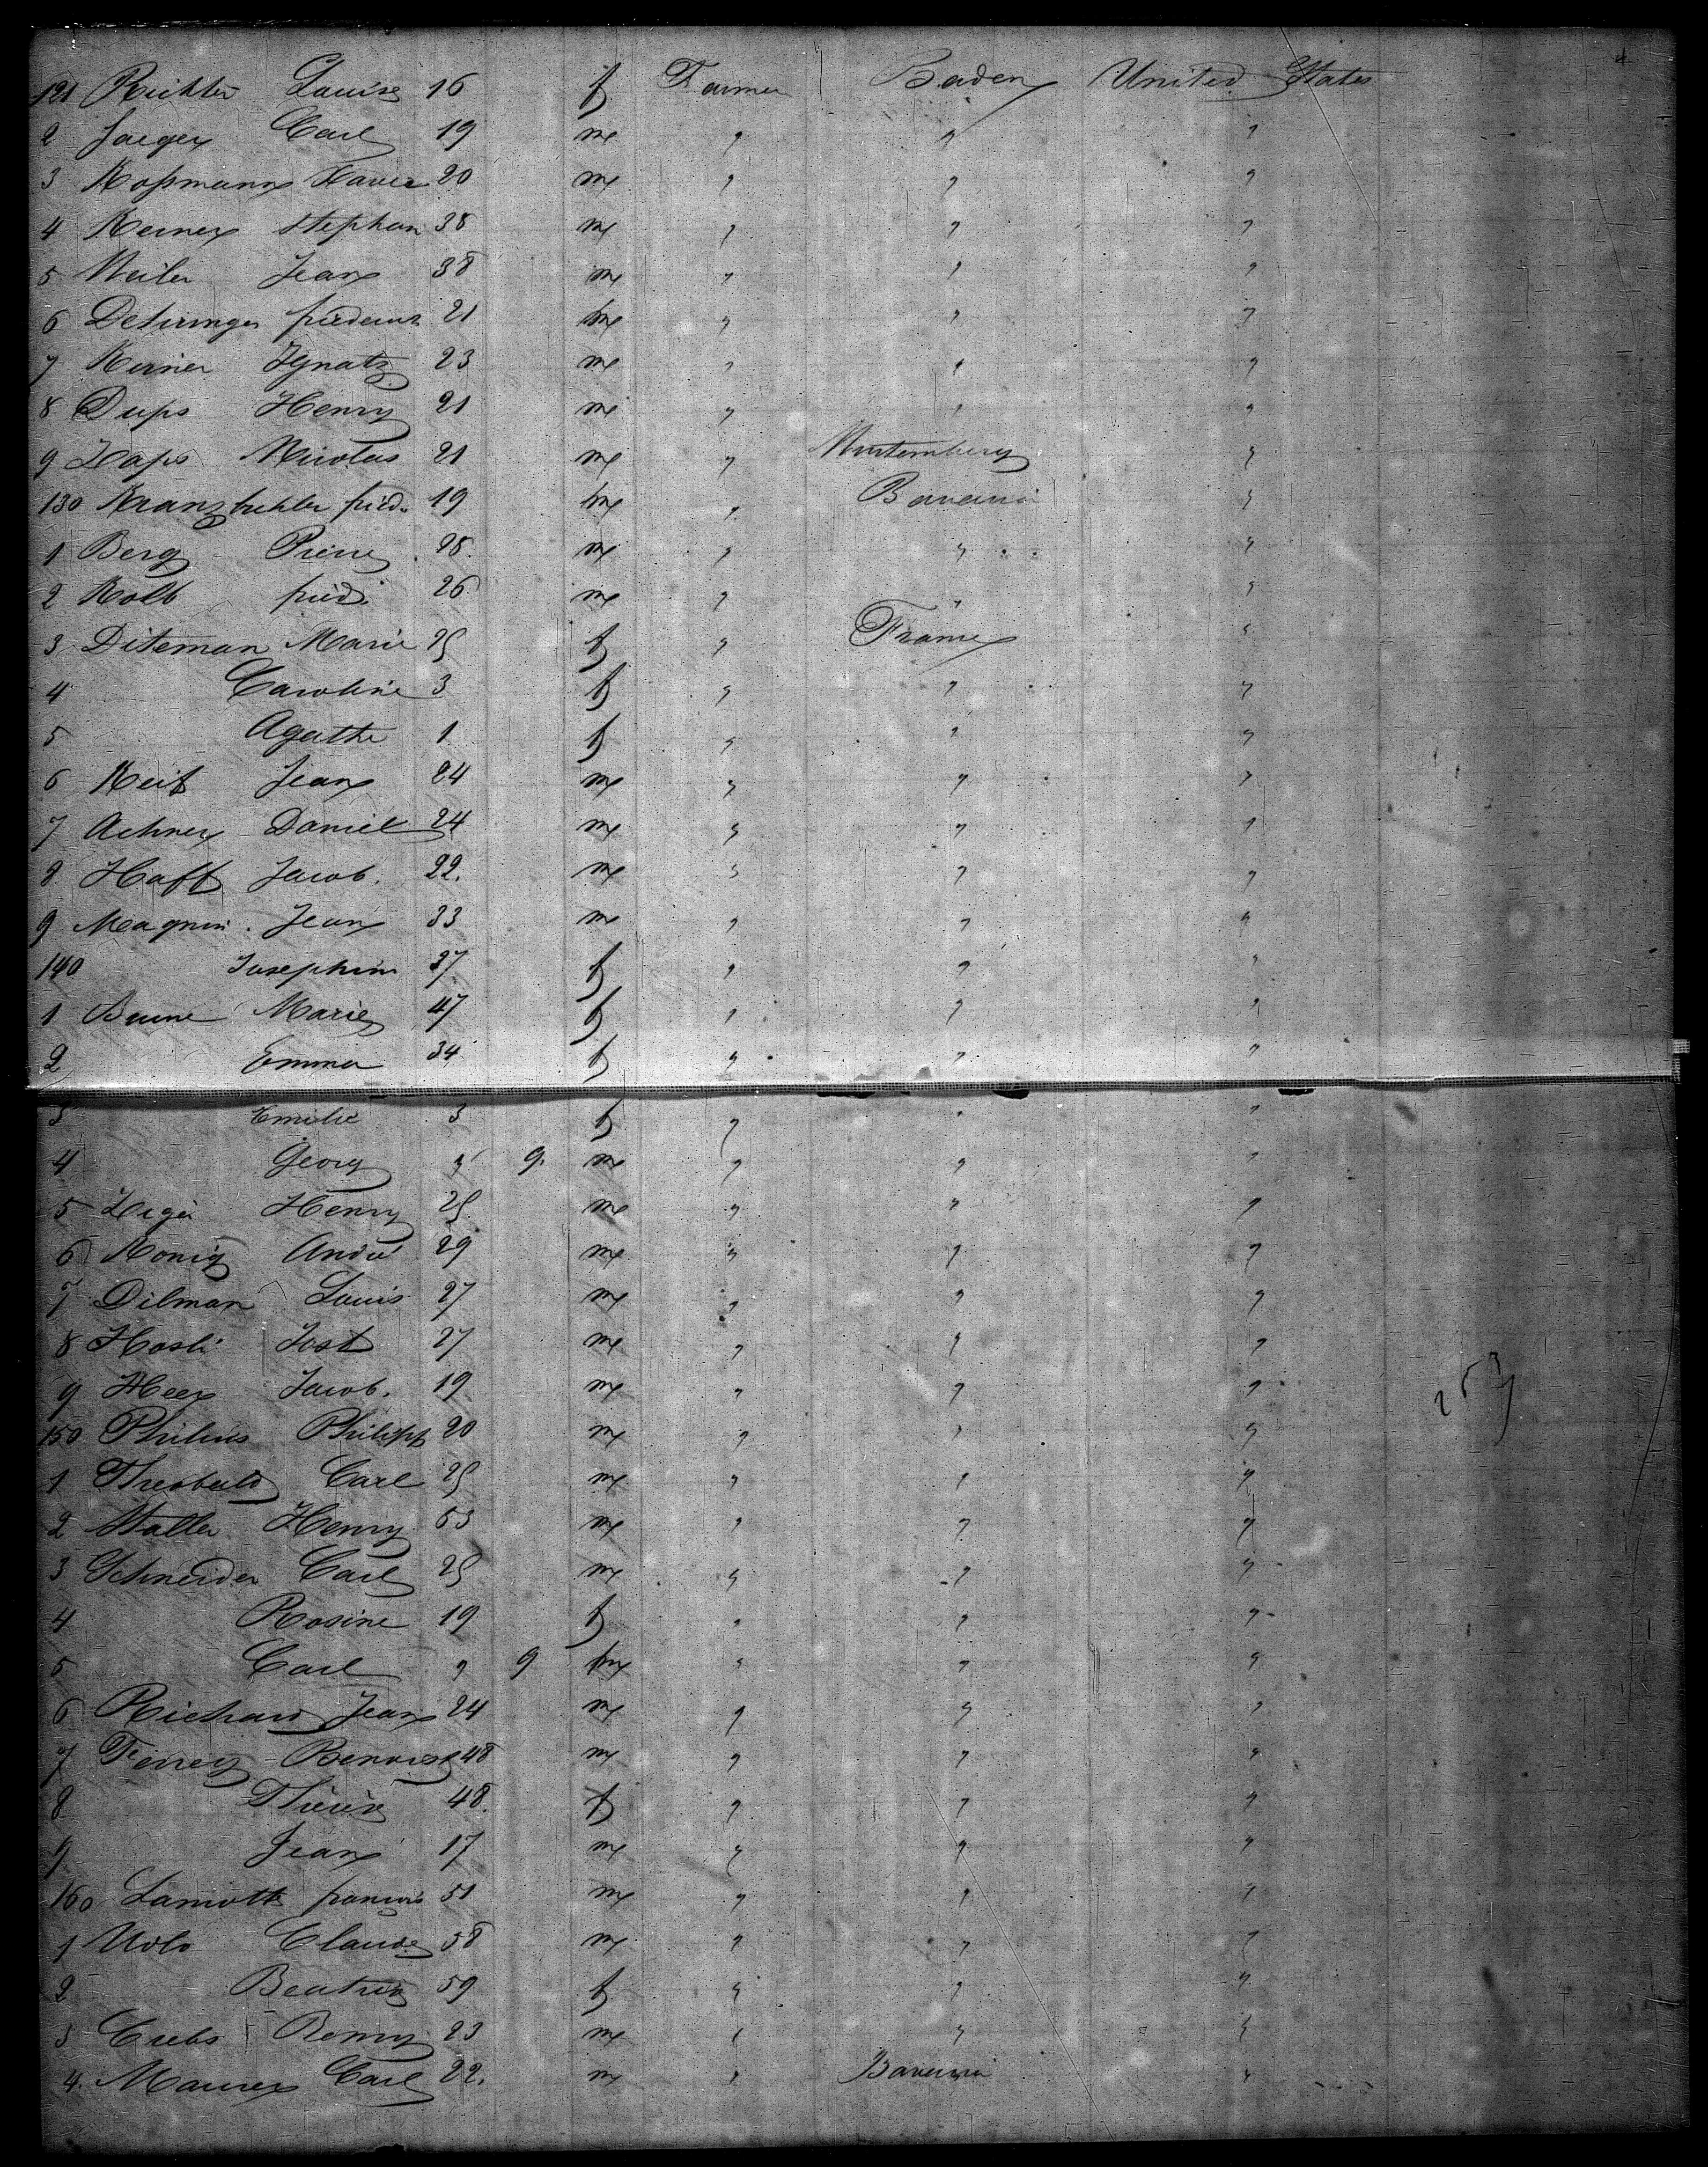 121 Richter Louise 16 f Farmer Baden United States
2 Jaeger Carl 19 m " " "
3 Koßmann Xavier 20 m " " "
4 Kerner Stephan 38 m " " "
5 Weiler Jean 38 m " " "
6 21 m " " "
7 Ignatz 23 m " " "
8 Dups Henry 21 m " " "
9 Nicolas 21 m " Wurtemberg "
130 Kranzbuhler fried. 19 m " Bavaria "
1 Berg Pierre 28. m " " "
2 Kolb fried. 26 m " " "
3 Diteman Marie 25 f " France "
4 Caroline 3 f " " "
5 Agathe 1 f " " "
6 Reif Jean 24 m " " "
7 Achner Daniel 24 m " " "
8 Haff Jacob. 22. m " " "
9 Magnin. Jean 33 m " " "
140 Josephine 27 f " " "
1 Marie 47 f " " "
2 Emma 34 f " " "
3 Emilie 3 f " " "
4 Georg " 9. m " " "
5 Henry 25 m " " "
6 Konig André 29 m " " "
7 Dilman Louis 27 m " " "
8 Hosli Jost 27 m " " "
9 Heer Jacob. 19 m " " "
257
150 Philipp 20 m " " "
1 Theobald Carl 25 m " " "
2 Henry 53 m " " "
3 Schneider Carl 25 m " " "
4 Rosine 19 f " " "
5 Carl " 9 m " " "
6 Richard Jean 24 m " " "
7 Ferrey Benoist 48 m " " "
8 Thérèse 48. f " " "
9 Jean 17 m " " "
160 Lamotte francois 51 m " " "
1 Claude 58 m " " "
2 Beatrix 59 f " " "
3 Remy 23 m " " "
4. Maurer Carl 22. m " Bavaria "